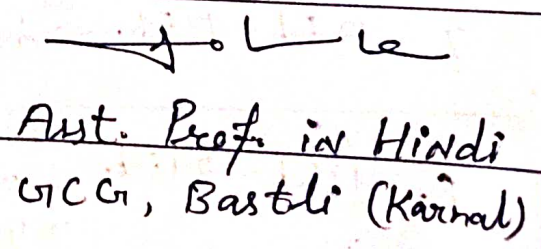 Asst. Prof. in Hindi
GCG, Bastli (Karnal)